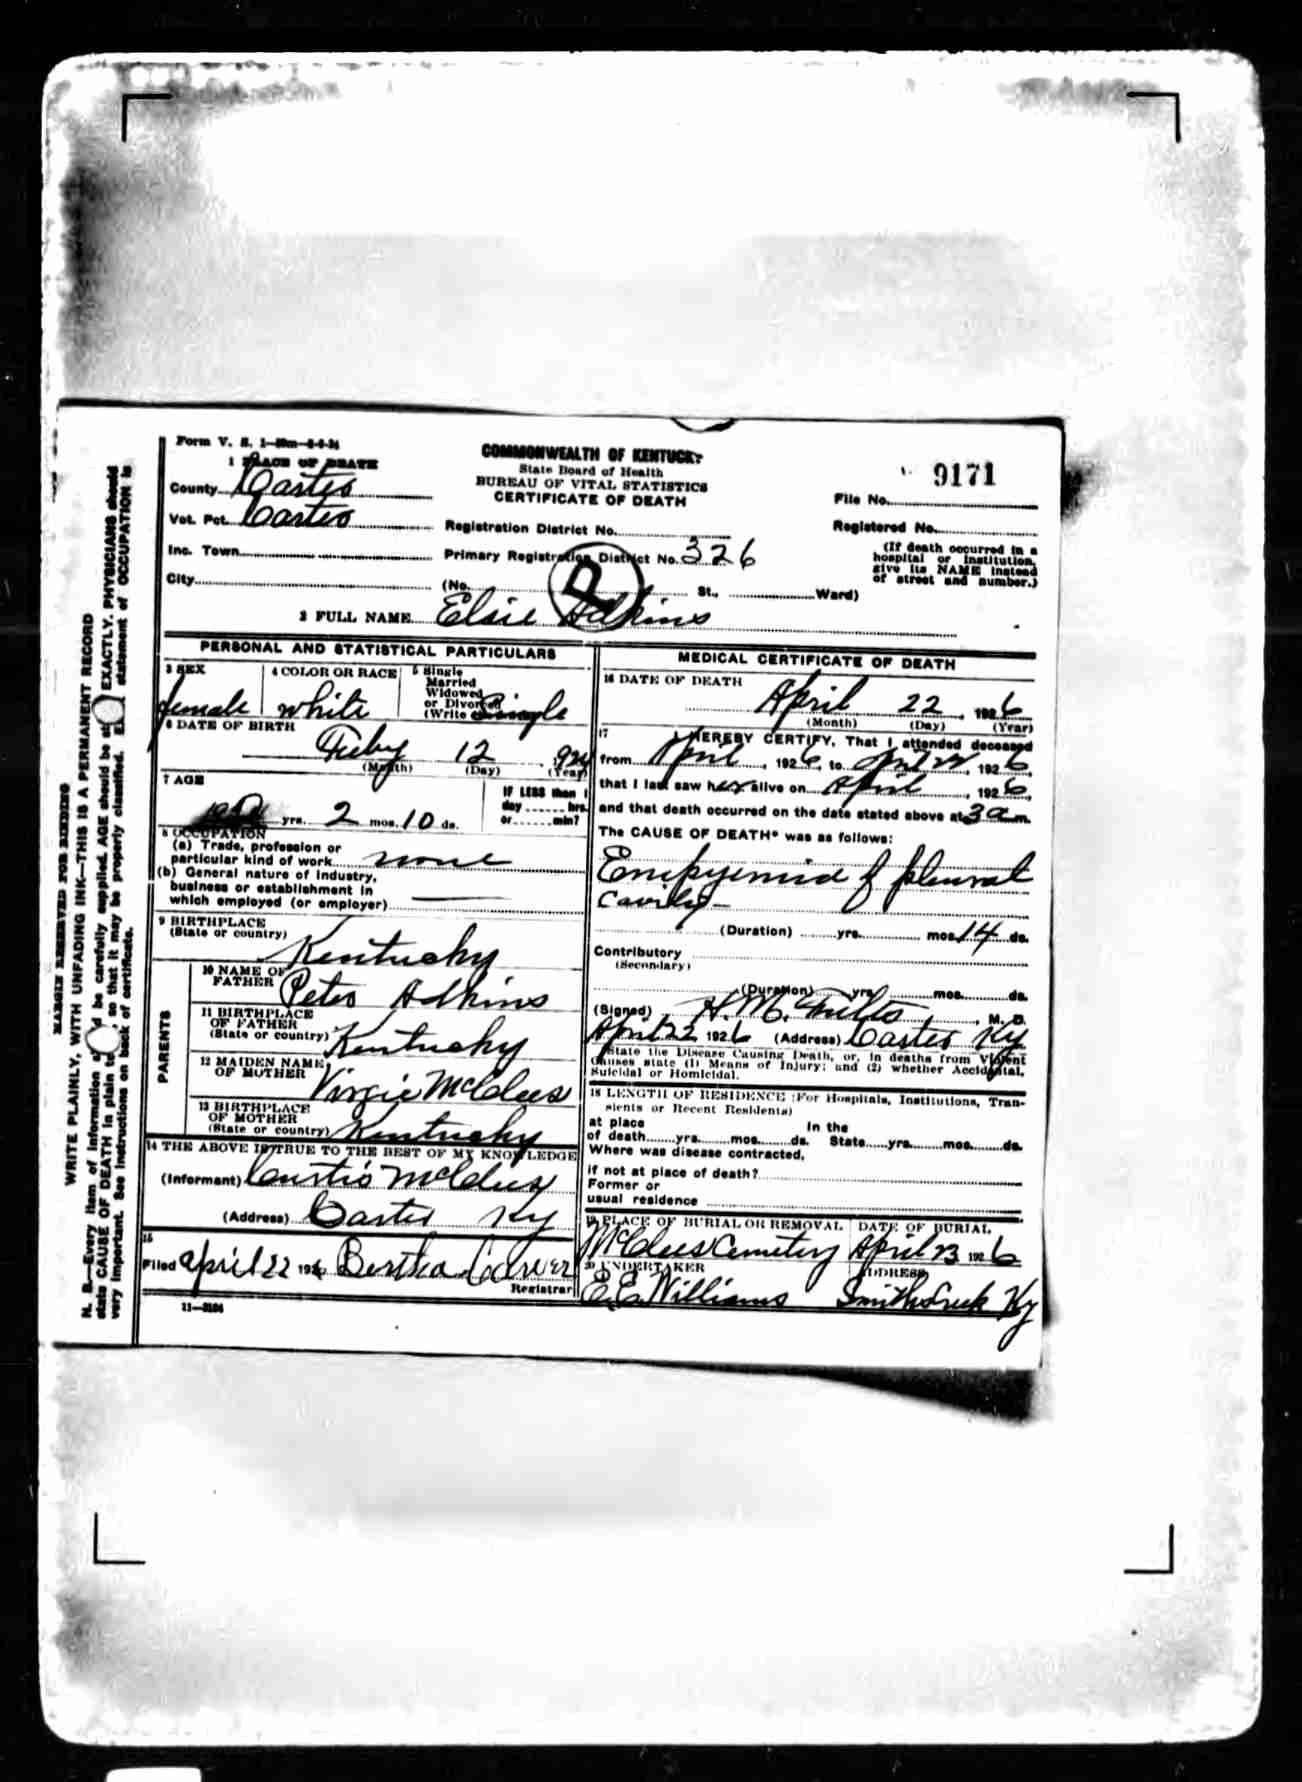 Form V. S. 1—50m—8-6-24
COMMONWEALTH OF KENTUCKY
State Board of Health
BUREAU OF VITAL STATISTICS
CERTIFICATE OF DEATH
9171
File No.
1 PLACE OF DEATH
County Carter
Vot. Pct. Carter
Registration District No.
Registered No.
Inc. Town
Primary Registration District No. 326
(If death occurred in a hospital or institution, give its NAME instead of street and number.)
City
(No. St., Ward)
P
2 FULL NAME Elsie Adkins
PERSONAL AND STATISTICAL PARTICULARS
3 SEX
female
4 COLOR OR RACE
white
5 Single
Married
Widowed
or Divorced
(Write Single
6 DATE OF BIRTH
Feby 12 924
(Month) (Day) (Year)
7 AGE
yrs. 2 mos. 10 ds.
IF LESS than 1
day hrs.
or min?
8 OCCUPATION
(a) Trade, profession or
particular kind of work none
(b) General nature of industry,
business or establishment in
which employed (or employer)
9 BIRTHPLACE
(State or country)
Kentucky
PARENTS
10 NAME OF
FATHER Peter Adkins
11 BIRTHPLACE
OF FATHER
(State or country) Kentucky
12 MAIDEN NAME
OF MOTHER Virgie McGlees
13 BIRTHPLACE
OF MOTHER
(State or country) Kentucky
14 THE ABOVE IS TRUE TO THE BEST OF MY KNOWLEDGE
(Informant) Curtis McGlees
(Address) Carter Ky
15
Filed April 22 1926 Bertha Carver
Registrar
11—3184
MEDICAL CERTIFICATE OF DEATH
16 DATE OF DEATH
April 22, 1926
(Month) (Day) (Year)
17
I HEREBY CERTIFY, That I attended deceased
from April, 1926, to April 22, 1926,
that I last saw her alive on April, 1926,
and that death occurred on the date stated above at 3 a m.
The CAUSE OF DEATH* was as follows:
Empyemia of pleural
Cavity
(Duration) yrs. mos. 14 ds.
Contributory
(Secondary)
(Duration) yrs. mos. ds.
(Signed) H. M. , M. D.
April 22 1926 (Address) Carter Ky
*State the Disease Causing Death, or, in deaths from Violent
Causes state (1) Means of Injury; and (2) whether Accidental,
Suicidal or Homicidal.
18 LENGTH OF RESIDENCE (For Hospitals, Institutions, Tran-
sients or Recent Residents)
at place In the
of death yrs. mos. ds. State yrs. mos. ds.
Where was disease contracted,
if not at place of death?
Former or
usual residence
19 PLACE OF BURIAL OR REMOVAL
McGlees Cemetery
DATE OF BURIAL
April 23 1926
20 UNDERTAKER
E. E. Williams
ADDRESS
Smiths Creek Ky
MARGIN RESERVED FOR BINDING
WRITE PLAINLY, WITH UNFADING INK—THIS IS A PERMANENT RECORD
N. B.—Every item of information should be carefully supplied. AGE should be stated EXACTLY. PHYSICIANS should
state CAUSE OF DEATH in plain terms, so that it may be properly classified. Exact statement of OCCUPATION is
very important. See instructions on back of certificate.